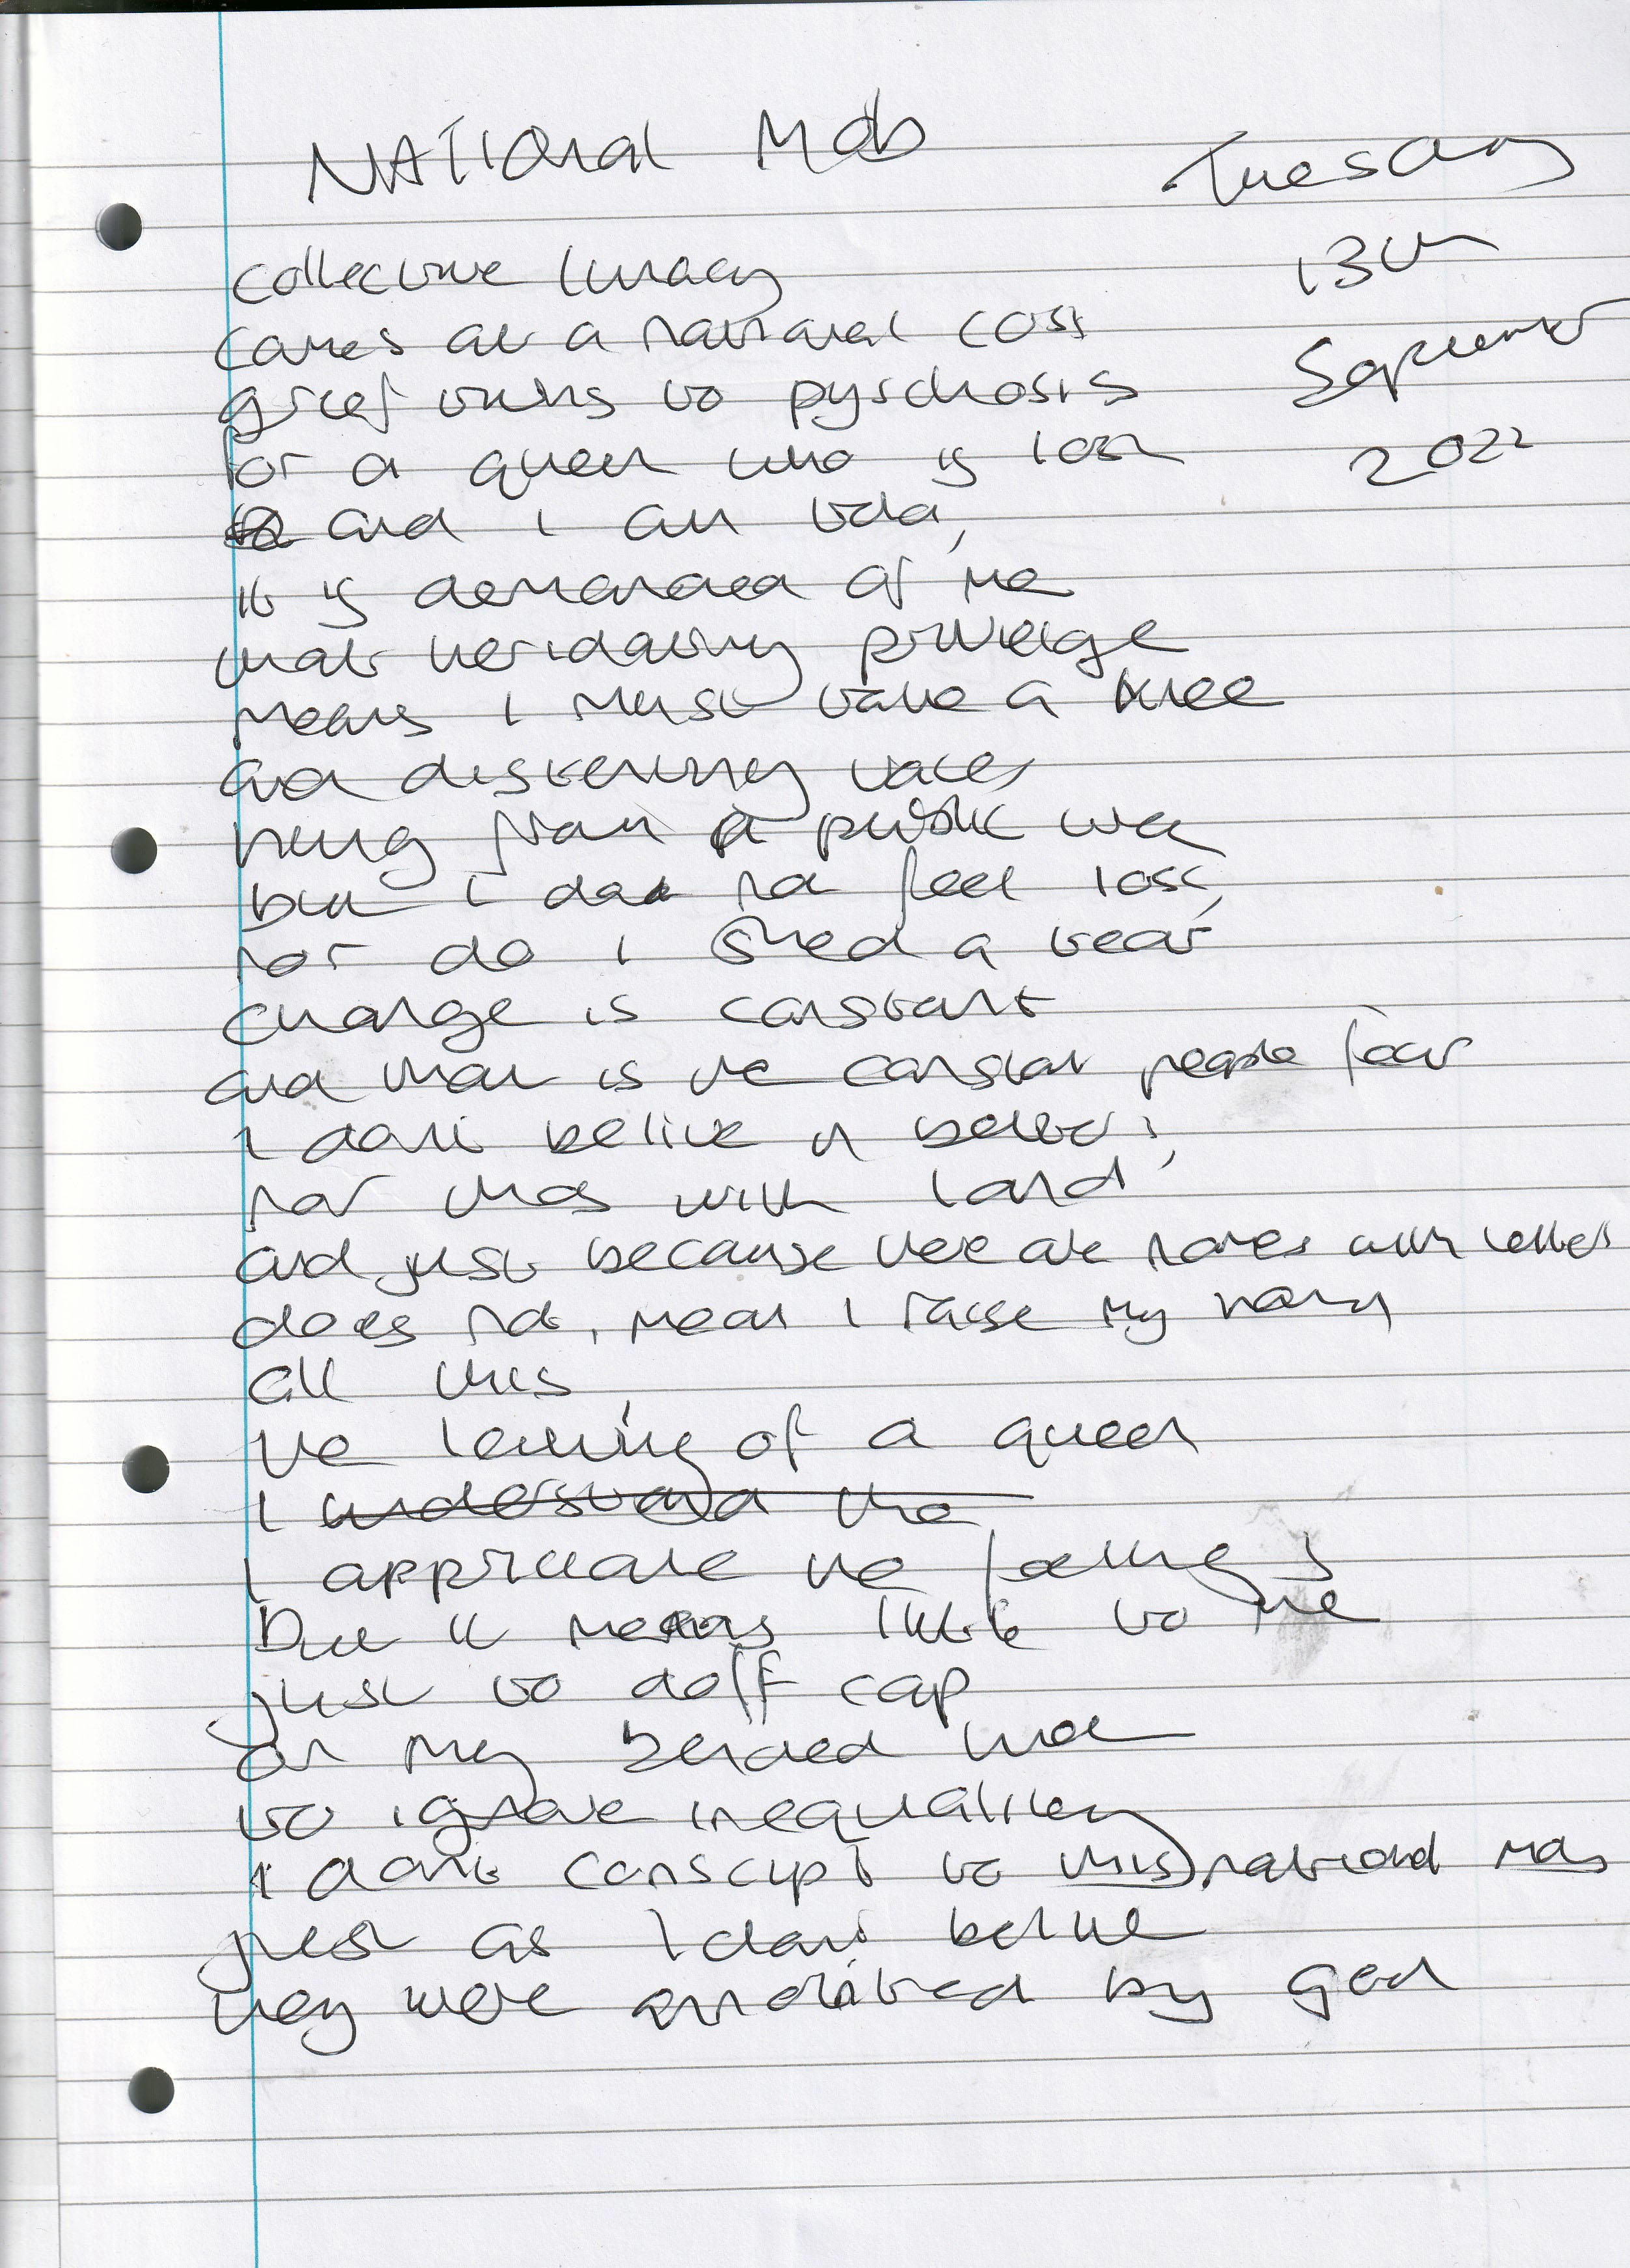 NATIONAL Mob
Tuesday
13th
September
2022
collective lunacy
comes at a national cost
grief turns to pyschosis
for a queen who is lost
and i am told,
it is demanded of me
that heridatiry privelage
means i must take a knee
and distening
hung from a public
but i do not feel loss,
nor do i shed a tear
change is constant
and that is the constant people fear
I dont belive in betters,
nor thos with land,
and just because there are names with letters
does not, mean I raise my hand
all this,
the leaving of a queen
I understand the
I appriciate the feeling
But it means little to me
just to doff cap
on my bended
to ignore inequalitey
I dont conscipt to this national mob
just as I dont belive
they were annointed by god